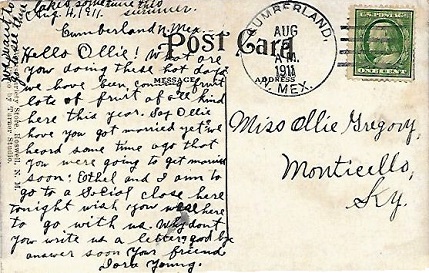 Lakes sometime this
summer.
Aug 4, 1911.
Cumberland N. Mex.
Hello Ollie! What are
you doing these hot days
we have been canning fruit
lots of fruit of all kind
here this year. Say Ollie
have you got married yet we
heard some time ago that
you were going to get married
soon. Eathel and I am to
go to a Social close here
tonight wish you were here
to go with us. Why don't
you write us a letter, good by
answer soon your friend
Dora Young.
Post Card
MESSAGE
ADDRESS
CUMBERLAND,
AUG
4
A.M.
1911
N. MEX.
U.S. POSTAGE
ONE CENT
Miss Ollie Gregory,
Monticello,
Ky.
Store, Roswell, N. M.
by Turner Studio.